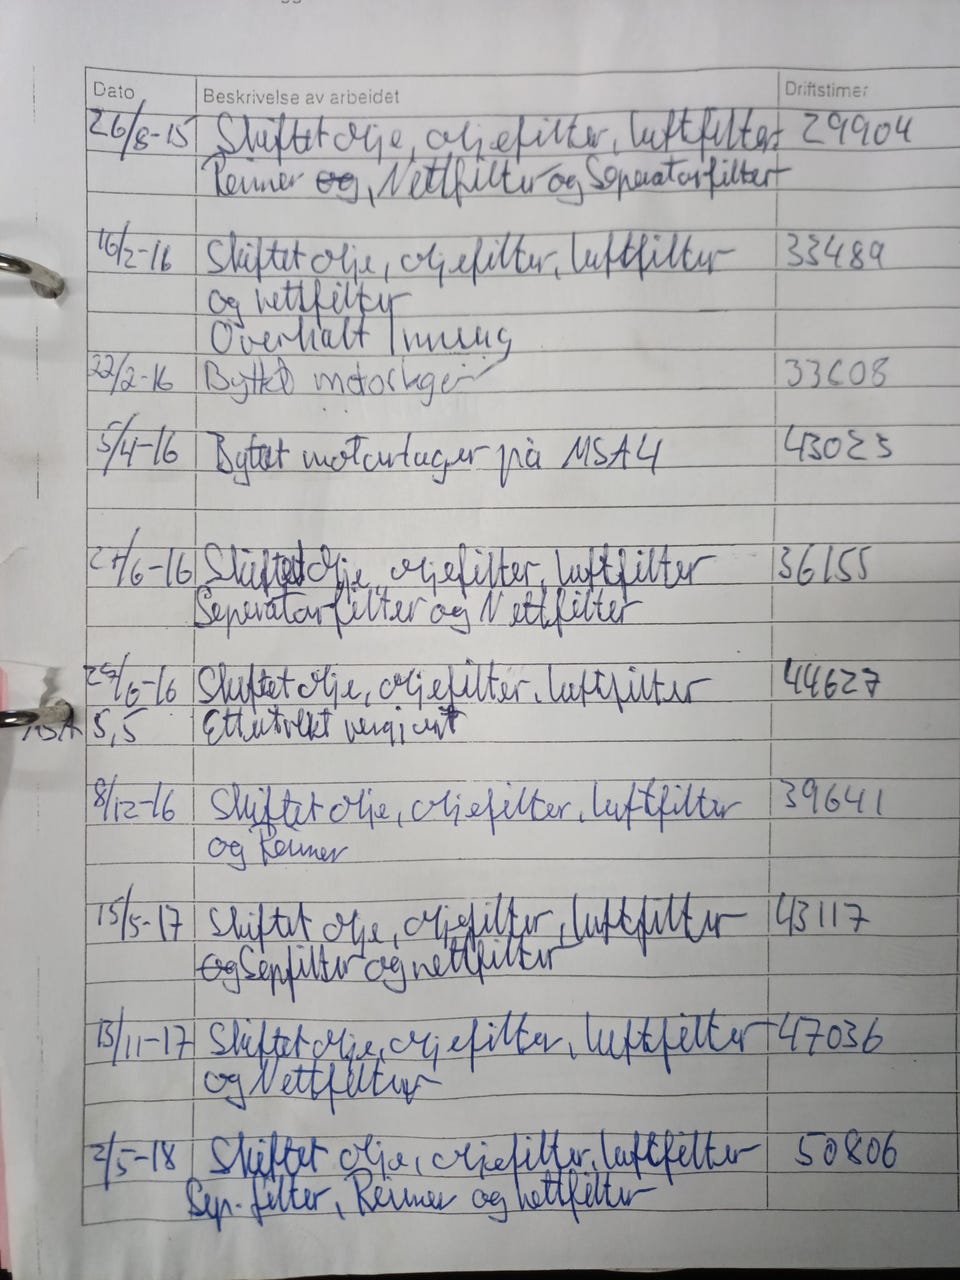 Dato Beskrivelse av arbeidet Driftstimer
26/8-15 Skiftet olje, oljefilter, luftfilter 29904
Reimer og, Nettfilter og Seperatorfilter
16/2-16 Skiftet olje, oljefilter, luftfilter 33489
og nettfilter
Overhalt
22/2-16 Byttet motorlager 33608
5/4-16 Byttet motorlager på MSA4 43023
27/6-16 Skiftet olje, oljefilter, luftfilter 36155
Seperatorfilter og Nettfilter
29/6-16 Skiftet olje, oljefilter, luftfilter 44627
5,5 Etterstrekt
8/12-16 Skiftet olje, oljefilter, luftfilter 39641
og Reimer
15/5-17 Skiftet olje, oljefilter, luftfilter 43117
og Sepfilter og nettfilter
13/11-17 Skiftet olje, oljefilter, luftfilter 47036
og Nettfilter
2/5-18 Skiftet olje, oljefilter, luftfilter 50806
Sep. filter, Reimer og nettfilter